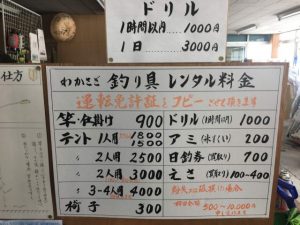 ドリル
1時間以内 1000円
1日 3000円
仕方
わかさぎ 釣り具 レンタル料金
運転免許証をコピーさせて頂きます
竿・竿掛け 900
テント 1人用 1800
1500
〃 2人用 2500
〃 2人用 3000
〃 3-4人用 4000
椅子 300
ドリル(1時間以内) 1000
アミ(氷すくい) 200
日釣券(買取り) 700
えさ(買取り) 100~400
紛失又は破損の場合
500~10,000円